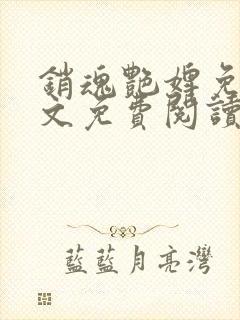 銷魂艷婢免
文免費閱讀
藍藍月亮灣